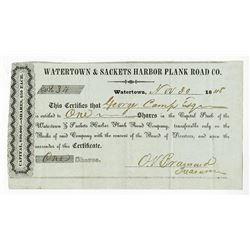 WATERTOWN & SACKETS HARBOR PLANK ROAD CO.
Watertown, Nov 30 1848
This Certifies that George Camp Esqr
is entitled to One Shares in the Capital Stock of the
Watertown & Sackets Harbor Plank Road Company, transferable only on the
Books of said Company with the consent of the Board of Directors, and upon the
surrender of this Certificate.
One Shares.
O. V. Brainard
Treasurer
CAPITAL, SHARES, $50 EACH.